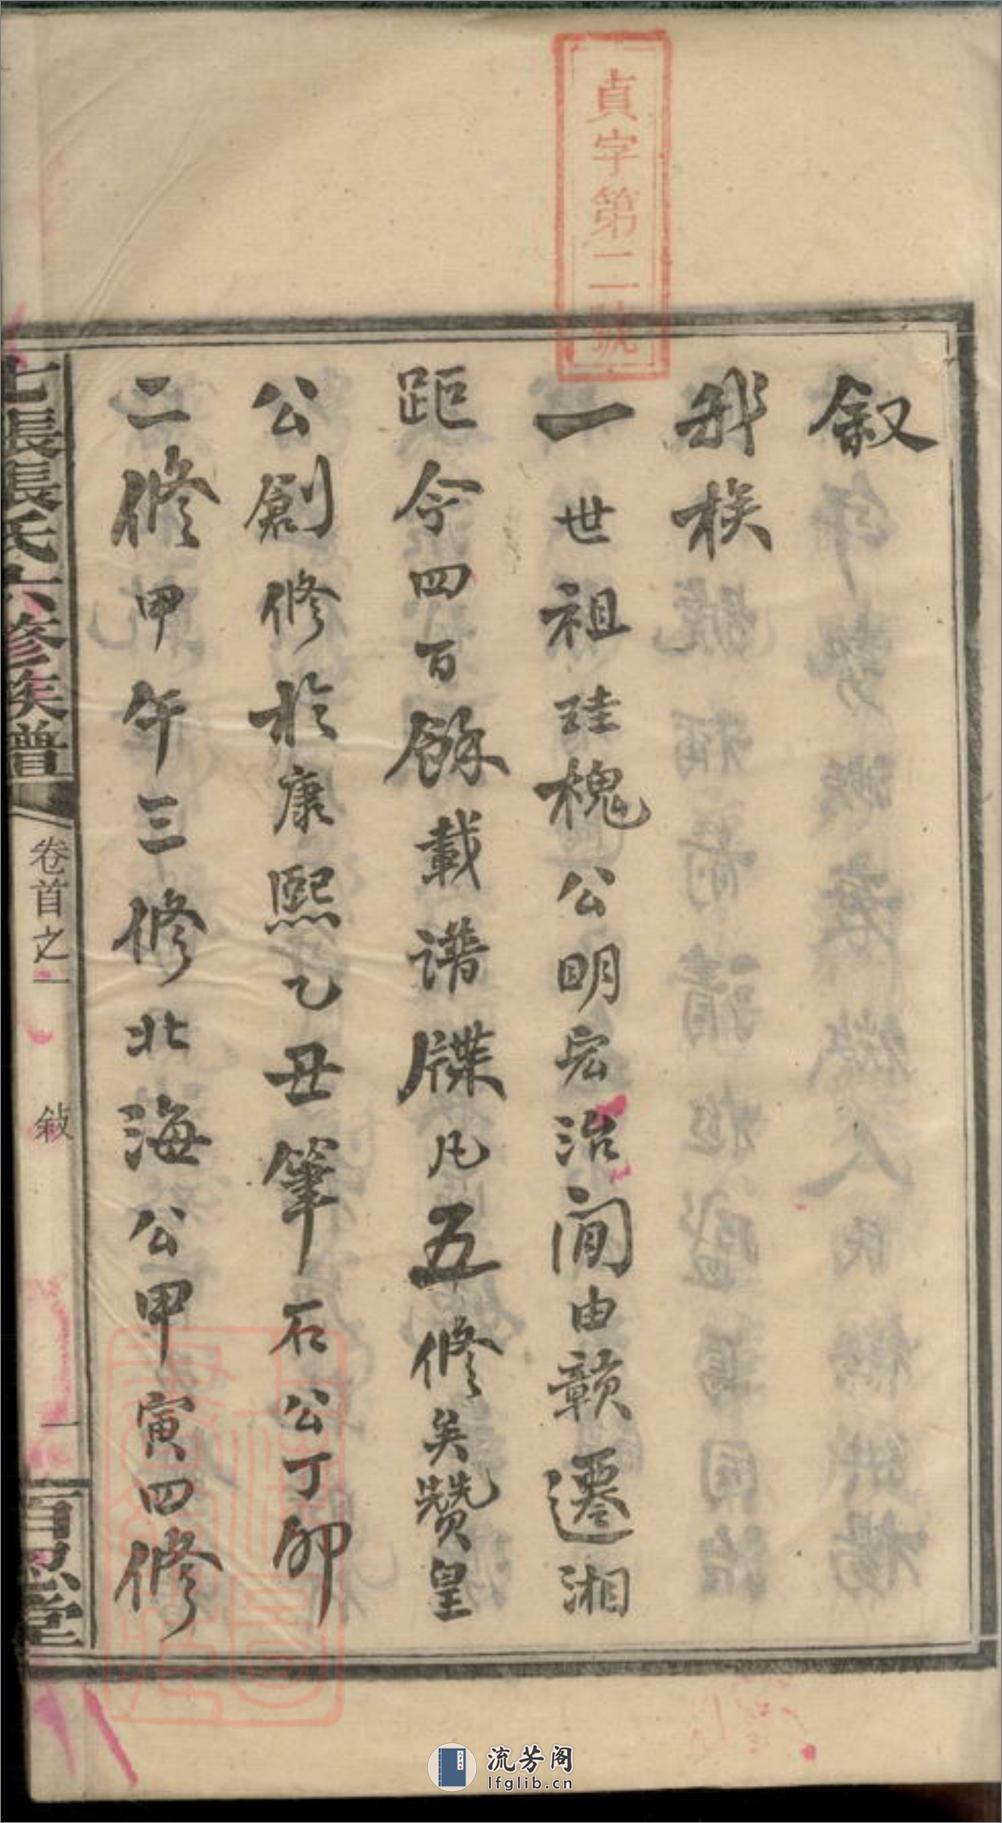 貞字第二號
敘
我族
一世祖珪槐公明宏治間由贛遷湘
距今四百餘載譜牒凡五修矣贊皇
公創修於康熙乙丑筆石公丁卯
二修甲午三修北海公甲寅四修
七張張氏六修族譜
卷首之一
敘
一
百忍堂
流芳阁
lfglib.cn